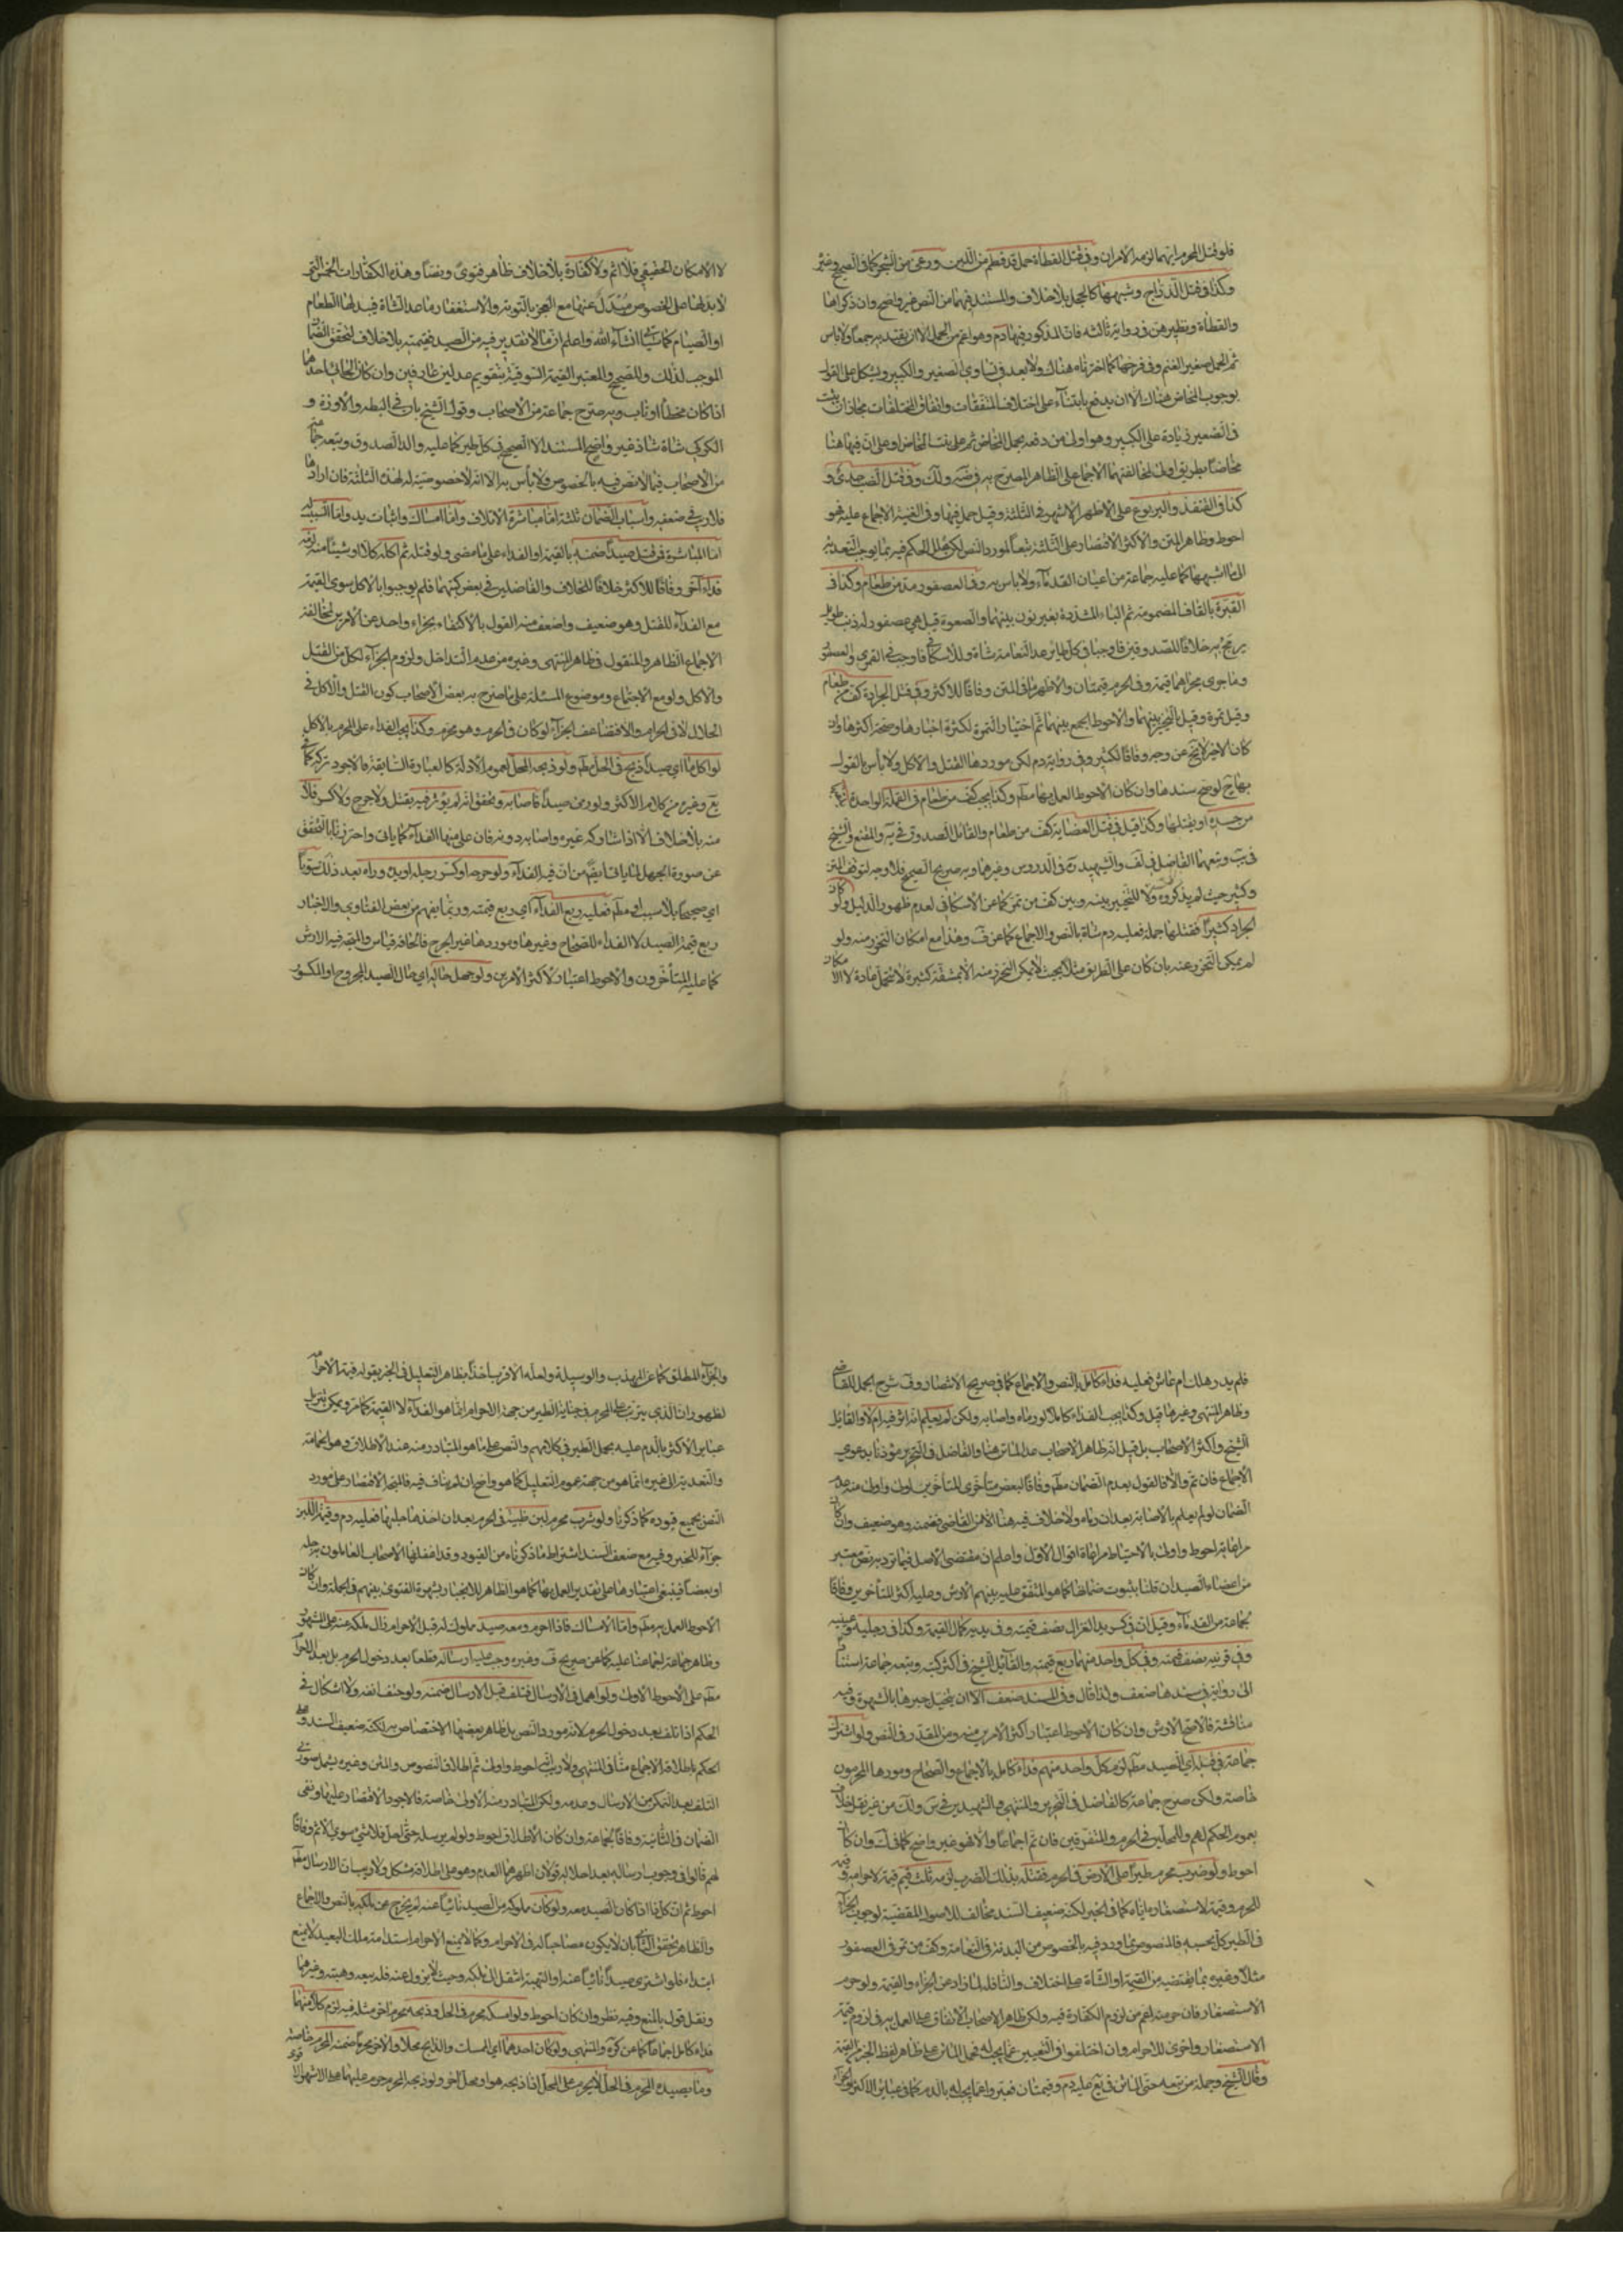 فلو قتل المحرم ايهما لزمه الامران وفي قتل القطاة حمل قد فطم من اللبن ورعى من الشجر كما في الصحيح وغيره
وكذا في قتل الدراج وشبههما كالحجل بلا خلاف والمستند فيهما من النص غير واضح وان ذكراها
والقطاة ونظيرهن في رواية ثالثة فان المذكور فيها دم وهو اعم من الحمل الا ان يقيد به جمعا ولا باس
ثم الحمل صغير الغنم وفي فرخها كما اخترناه هناك ولا بعد في تساوي الصغير والكبير ويشكل على القول
بوجوب المخاض هناك الا ان يدفع بابتنائه على اختلاف المتفقات واتفاق المختلفات فجاز ان يثبت
في الصغير زيادة على الكبير وهو اولى من دفعه بحمل المخاض ثم على بنت المخاض او على ان فيها هنا
مخاضا بطريق اولى لمخالفتهما الاجماع على الظاهر المصرح به في ضه ولك وفي قتل الضب جدي و
كذا في القنفذ واليربوع على الاظهر الاشهر في الثلثة وقيل حمل فيها وفي الغنية الاجماع عليه فهو
احوط وظاهر المتن والاكثر الاقتصار على الثلثة تبعا لمورد النص لكن علل الحكم فيه بما يوجب التعدية
الى ما اشبهها كما عليه جماعة من اعيان القدماء ولا باس به وفي العصفور مد من طعام وكذا في
القبرة بالقاف المضمومة ثم الباء المشددة بغير نون بينهما والصعوة قيل هي عصفور له ذنب طويل
يرمح به خلافا للصدوقين فاوجبا في كل طائر عدا النعامة شاة وللاسكافي فاوجب في القمري والعصفور
وما جرى مجراهما قيمة وفي الحرم قيمتان والاظهر ما في المتن وفاقا للاكثر وفي قتل الجرادة كف من طعام
وقيل تمرة وقيل بالتخيير بينهما والاحوط الجمع بينهما ثم اختيار التمرة لكثرة اخبارها وصحة اكثرها وان
كان الاخير لا يخ عن وجه وفاقا لكثير وفي رواية دم لكن موردها القتل والاكل ولا باس بالقول
بها ح لوضوح سندها وان كان الاحوط العمل بها مطم وكذا يجب كف من طعام في القملة الواحدة
من جسده او يقتلها وكذا قيل في قتل العضاية كف من طعام والقائل الصدوق في يه والمقنع والشيخ
في يب وتبعهما الفاضل في لف والشهيد ره في الدروس وغيرها وبه صريح الصحيح فلا وجه لتوقف المتن
وكثير حيث لم يذكروه ولا للتخيير بينه وبين كف من تمر كما عن الاسكافي لعدم ظهور الدليل ولو كان
الجراد كثيرا فقتلها جملة فعليه دم شاة بالنص والاجماع كما عن ف وهذا مع امكان التحرز منه ولو
لم يمكن التحرز عنه بان كان على الطريق مثلا بحيث لا يمكن التحرز منه الا بمشقة كثيرة لا تتحمل عادة لا الامكان
لا الامكان الحقيقي فلا اثم ولا كفارة بلا خلاف ظاهر فتوى ونصا وهذه الكفارات الخمس التي
لا بدل لها على الخصوص مبدل عنها مع العجز بالتوبة والاستغفار وما عدا الشاة فيبدلها الطعام
او الصيام كما سيأتي انشاء الله واعلم ان ما لا تقدير فيه من الصيد فقيمته بلا خلاف لتحقق الضمان
الموجب لذلك وللصحيح والمعتبر القيمة السوقية بتقويم عدلين عارفين وان كان الجاني احدهما
اذا كان مخطأ او تاب وبه صرح جماعة من الاصحاب وقول الشيخ بان في البطة والاوزة و
الكركي شاة شاذ غير واضح المستند الا الصحيح في كل طير كما عليه والد الصدوق وتبعه جماعة
من الاصحاب فيما لا نص فيه بالخصوص ولا بأس به الا انه لا خصوصية له لهذه الثلثة فان ارادها
فلا ريب في ضعفه واسباب الضمان ثلثة اما مباشرة الاتلاف واما امساك واثبات يد واما التسبيب
اما المباشرة فمن قتل صيدا ضمنه بالقيمة او الفداء على ما مضى ولو قتله ثم اكله كلا او شيئا منه لزمه
فداء آخر وفاقا للاكثر خلافا للخلاف والفاضلين في بعض كتبهما فلم يوجبوا بالاكل سوى القيمة
مع الفداء للقتل وهو ضعيف واضعف منه القول بالاكتفاء بجزاء واحد عن الامرين لمخالفته
الاجماع الظاهر والمنقول في ظاهر المنتهى وغيره من عدم التداخل ولزوم الجزاء لكل من القتل
والاكل ولو مع الاجتماع وموضوع المسئلة على ما صرح به بعض الاصحاب كون القتل والاكل في
الحلال لا في الحرام والا فتضاعف الجزاء لو كان في الحرم وهو محرم وكذا يجب الفداء على المحرم بالاكل
لو اكل ما اي صيدا ذبح في الحل مطم ولو ذبحه المحل لعموم الادلة كالعبارة السابقة فالاجود تركه كما في
يع وغيره من كلام الاكثر ولو رمى صيدا فاصابه وتحقق انه لم يؤثر فيه بقتل ولا جرح ولا كسر فلا
منه بلا خلاف الا اذا شاركه غيره واصابه دونه فان عليهما الفداء كما ياتي واحترزنا بالتحقق
عن صورة الجهل لما ياتي من ان فيه الفداء ولو جرحه او كسر رجله او يده وراه بعد ذلك سويا
اي صحيحا بلا سبب مطم فعليه ربع الفداء اي ربع قيمته وربما يفهم من بعض الفتاوي والاخبار
ربع قيمة الصيد لا الفداء للصحاح وغيرها وموردها غير الجرح فالحاقه قياس والمتجه فيه الارش
كما عليه المتأخرون والاحوط اعتبار الاكثر الامرين ولو جهل حاله اي حال الصيد المجروح او المكسور
فلم يدر هلك ام عاش فعليه فداء كامل بالنص والاجماع كما في صريح الانتصار وف شرح الجمل للقاضي
وظاهر المنتهى وغيرها قيل وكذا يجب الفداء كاملا لو رماه واصابه ولكن لم يعلم انه اثر فيه ام لا والقائل
الشيخ واكثر الاصحاب بل قيل انه ظاهر الاصحاب عدا الماتن هنا والفاضل في التحرير مؤذنا بدعوى
الاجماع فان تم والا فالقول بعدم الضمان مطم وفاقا لبعض متأخري المتأخرين اولى واولى منه عدم
الضمان لو لم يعلم بالاصابة بعد ان رماه ولا خلاف فيه هنا الا من القاضي فضمنه وهو ضعيف وان كان
مراعاته احوط واولى بالاحتياط مراعاة القول الاول واعلم ان مقتضى الاصل فيما لم ترد به نص معتبر
من اعضاء الصيد ان قلنا بثبوت ضمانها كما هو المتفق عليه بينهم الارش وعليه اكثر المتأخرين وفاقا
لجماعة من القدماء وقيل ان في كسر يد الغزال نصف قيمته وفي يديه كمال القيمة وكذا في رجليه وفي عينيه
وفي قرنيه نصف قيمته وفي كل واحد منهما ربع قيمته والقائل الشيخ في اكثر كتبه وتبعه جماعة استنادا
الى رواية في سندها ضعف ولذا قال وفي المستند ضعف الا ان يتخيل جبرها بالشهرة وفيه
مناقشة فالاصح الارش وان كان الاحوط اعتبار اكثر الامرين منه ومن المقدر في النص ولو اشترك
جماعة في قتل اي الصيد مطم لزم كل واحد منهم فداء كامل بالاجماع والصحاح وموردها المحرمون
خاصة ولكن صرح جماعة كالفاضل في التحرير والمنتهى والشهيدين في س ولك من غير نقل خلاف
بعموم الحكم لهم وللمحلين في الحرم والمتفرقين فان تم اجماعا والا فهو غير واضح كما في ك وان كان
احوط ولو ضرب محرم طيرا على الارض في الحرم فقتله بذلك الضرب لزمه ثلث قيم قيمة لاحرامه وقيمة
للحرم وقيمة لاستصغاره اياه كما في الخبر لكنه ضعيف السند مخالف للاصول المقتضية لوجوب الجزاء
في الطير كل بحسبه فالمنصوص بما ورد فيه بالخصوص من البدنة في النعامة وكف من تمر في العصفور
مثلا وغيره بما يقتضيه من القيمة او الشاة على اختلاف والنافية لما زاد عن الجزاء والقيمة ولو حرم
الاستصغار فان حرمته اعم من لزوم الكفارة فيه ولكن ظاهر الاصحاب الاتفاق على العمل به في لزوم قيمة
الاستصغار واخرى للاحرام وان اختلفوا في التعبير عما يجب له فحمل الماتن على ظاهر لفظ الخبر القيمة
وقال الشيخ وجملة من تبعه حتى الماتن في يع عليه دم وقيمتان فعبروا عما يجب له بالدم كما في عبائر الاكثر والجزاء
والجزاء المطلق كما عن المهذب والوسيلة ولعله الاقرب اخذا بظاهر التعليل في الخبر بقوله قيمة لاحرامه
لظهور ان الذي يترتب على المحرم في جناية الطير من جهة الاحرام انما هو الفداء لا القيمة كما مر ويمكن تنزيل
عبائر الاكثر بالدم عليه بحمل الطير في كلامهم والنص على ما هو المتبادر منه عند الاطلاق وهو الحمامة
والتعدية الى غيره انما هو من جهة عموم التعليل كما هو واضح ان لم يناف فيه فالمتجه الاقتصار على مورد
النص بجميع قيوده كما ذكرنا ولو شرب محرم لبن ظبية في الحرم بعد ان اخذها حلبها فعليه دم وقيمة اللبن
جزاء للخبر وفيه مع ضعف السند اشتراط ما ذكرناه من القيود وقد اغفلها الاصحاب العاملون به جملة
او بعضا فينبغي اعتبارها على تقدير العمل بها كما هو الظاهر للانجبار بشهرة الفتوى بينهم في الجملة وان كان
الاحوط العمل به مطم واما الامساك فاذا احرم ومعه صيد مملوك له قبل الاحرام زال ملكه عنه على المشهور
وظاهر جماعة اجماعنا عليه كما عن صريح ف وغيره وجب عليه ارساله قطعا بعد دخول الحرم بل بعد الاحرام
مطم على الاحوط الاولى ولو اهمل في الارسال فتلف قبل الارسال ضمنه ولو حتف انفه ولا اشكال في
الحكم اذا تلف بعد دخول الحرم لانه مورد النص بل ظاهر بعضها الاختصاص به لكنه ضعيف السند
الحكم باطلاقه الاجماع عن المنتهى ولا ريب انه احوط واولى ثم اطلاق النصوص والمتن وغيره يشمل صورتي
التلف بعد التمكن من الارسال وعدمه ولكن المتبادر منه الاولى خاصة فالاجود الاقتصار عليها ونفي
الضمان في الثانية وفاقا لجماعة وان كان الاطلاق احوط ولو لم يرسله حتى احل فلا شئ سوى الاثم وفاقا
لهم قالوا في وجوب ارساله بعد احلاله قولان اظهرهما العدم وهو على اطلاقه مشكل ولا ريب ان الارسال مطم
احوط ثم ان كل ذا اذا كان الصيد معه ولو كان مملوكه من الصيد نائيا عنه لم يخرج عن ملكه بالنص والاجماع
والظاهر تحقق النائي بان لا يكون مصاحبا له في الاحرام وكما لا يمنع الاحرام استدامة ملك البعيد لا يمنع
ابتداءه فلو اشترى صيدا نائيا عنه او اتهبه انتقل الى ملكه وحيث لم يزول عنه فله بيعه وهبته وغيرهما
ونقل قول بالمنع وفيه نظر وان كان احوط ولو امسكه محرم في الحل وذبحه محرم اخر مثله فيه لزم كلا منهما
فداء كامل اجماعا كما عن كره والمنتهى ولو كان احدهما اي الممسك والذابح محلا والاخر محرما ضمنه المحرم خاصة
وما يصيده المحرم في الحل لا يحرم على المحل اذا ذبحه هو او محل آخر ولو ذبحه المحرم حرم عليهما على الاشهر